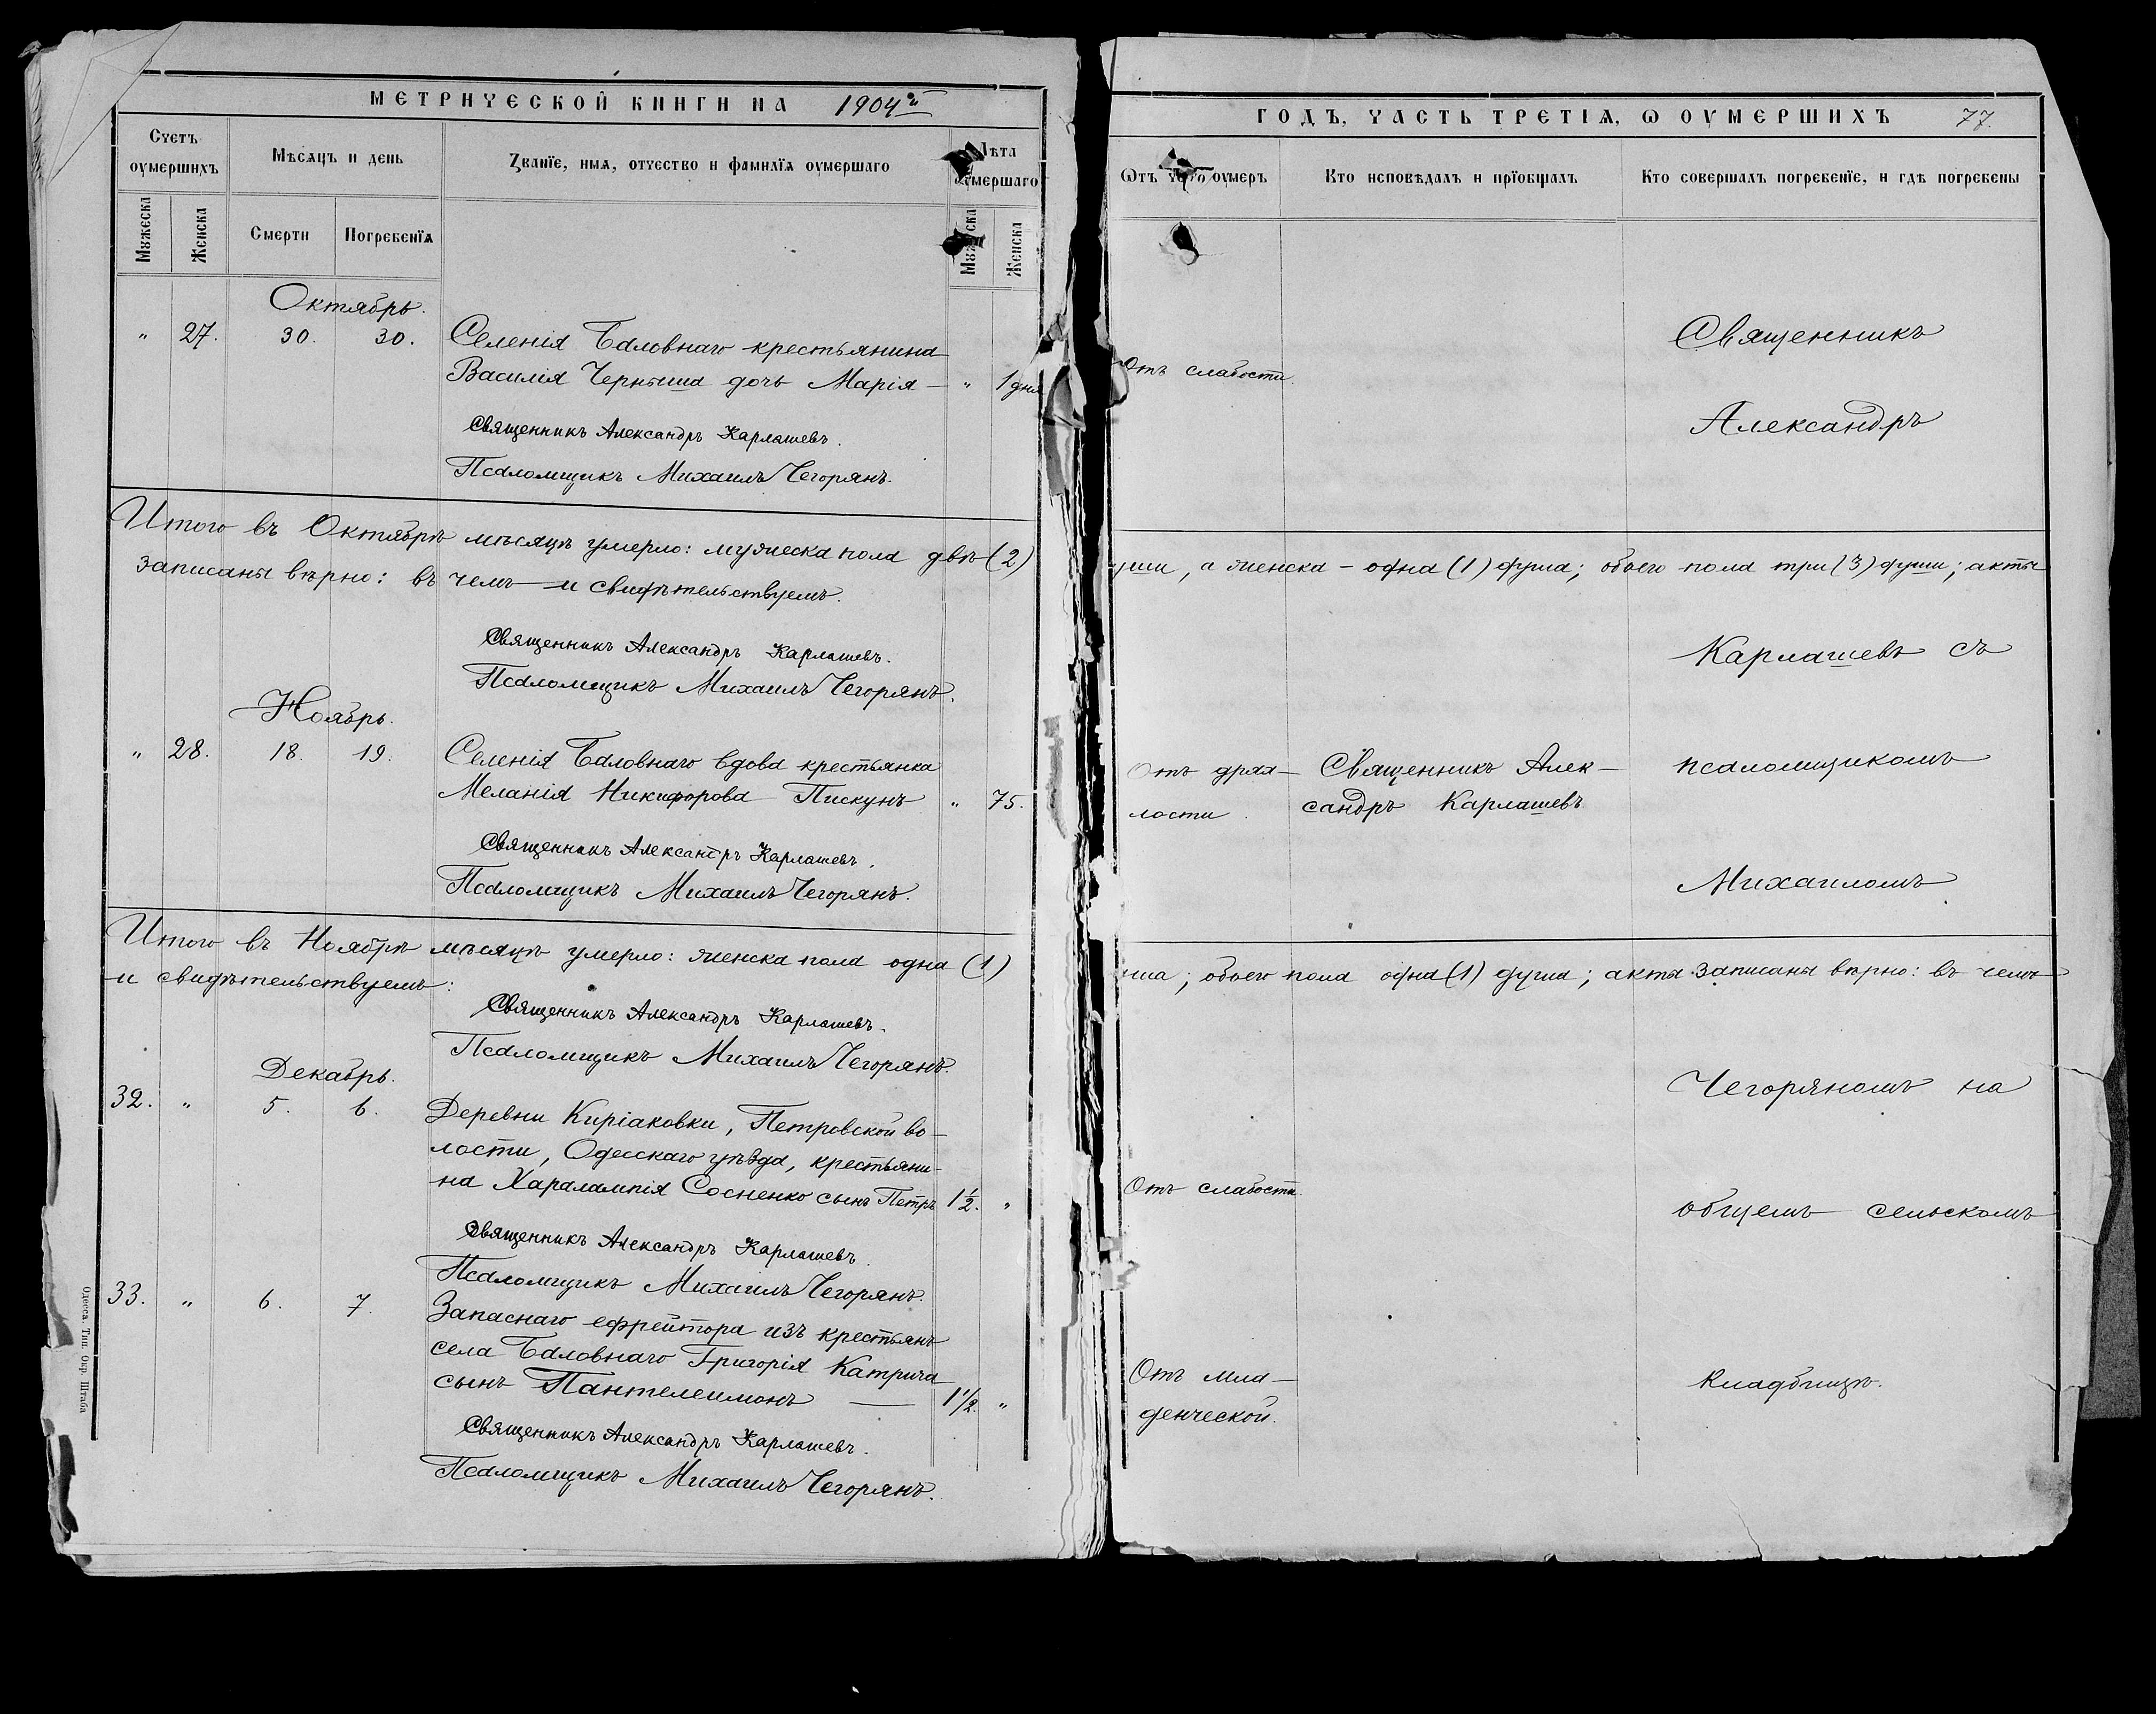 МЕТРИЧЕСКОЙ КНИГИ НА 1904й
Счетъ оумершихъ
Мѣсяцъ и день
Званїе, имя, отчество и фамилїя оумершаго
Лѣта оумершаго
Мꙋжеска
Женска
Смерти
Погребенїя
Мꙋжеска
Женска
Октябрь.
" 27. 30. 30. Селенія Баловнаго крестьянина
Василія Черныша дочь Марія — " 1 дня
Священникъ Александръ Карлашевъ.
Псаломщикъ Михаилъ Чегорянъ.
Итого въ Октябрѣ мѣсяцѣ умерло: мужеска пола двѣ (2)
записаны вѣрно: въ чемъ и свидѣтельствуемъ.
Священникъ Александръ Карлашевъ.
Псаломщикъ Михаилъ Чегорянъ.
Ноябрь.
" 28. 18. 19. Селенія Баловнаго вдова крестьянка
Меланія Никифорова Пискунъ " 75.
Священникъ Александръ Карлашевъ.
Псаломщикъ Михаилъ Чегорянъ.
Итого въ Ноябрѣ мѣсяцѣ умерло: женска пола одна (1)
и свидѣтельствуемъ:
Священникъ Александръ Карлашевъ.
Псаломщикъ Михаилъ Чегорянъ.
Декабрь.
32. " 5. 6. Деревни Киріаковки, Петровской во-
лости, Одесскаго уѣзда, крестьяни-
на Харалампія Сосненко сынъ Петръ 1½. "
Священникъ Александръ Карлашевъ.
Псаломщикъ Михаилъ Чегорянъ.
33. " 6. 7. Запаснаго ефрейтора изъ крестьянъ
села Баловнаго Григорія Катрича
сынъ Пантелеимонъ — 1½. "
Священникъ Александръ Карлашевъ.
Псаломщикъ Михаилъ Чегорянъ.
Одесса. Тип. Окр. Штаба
ГОДЪ, ЧАСТЬ ТРЕТІѦ, Ѡ ОУМЕРШИХЪ 77.
Ѿтъ чего оумеръ
Кто исповѣдалъ и прїобщалъ
Кто совершалъ погребенїе, и гдѣ погребены
Священникъ
Отъ слабости.
Александръ
уши, а женска – одна (1) душа; обоего пола три (3) души; акты
Карлашевъ съ
Отъ дрях- Священникъ Алек- псаломщикомъ
лости. сандръ Карлашевъ
Михаиломъ
уша; обоего пола одна (1) душа; акты записаны вѣрно: въ чемъ
Чегоряномъ на
Отъ слабости.
общемъ сельскомъ
Отъ мла-
денческой.
кладбищѣ.